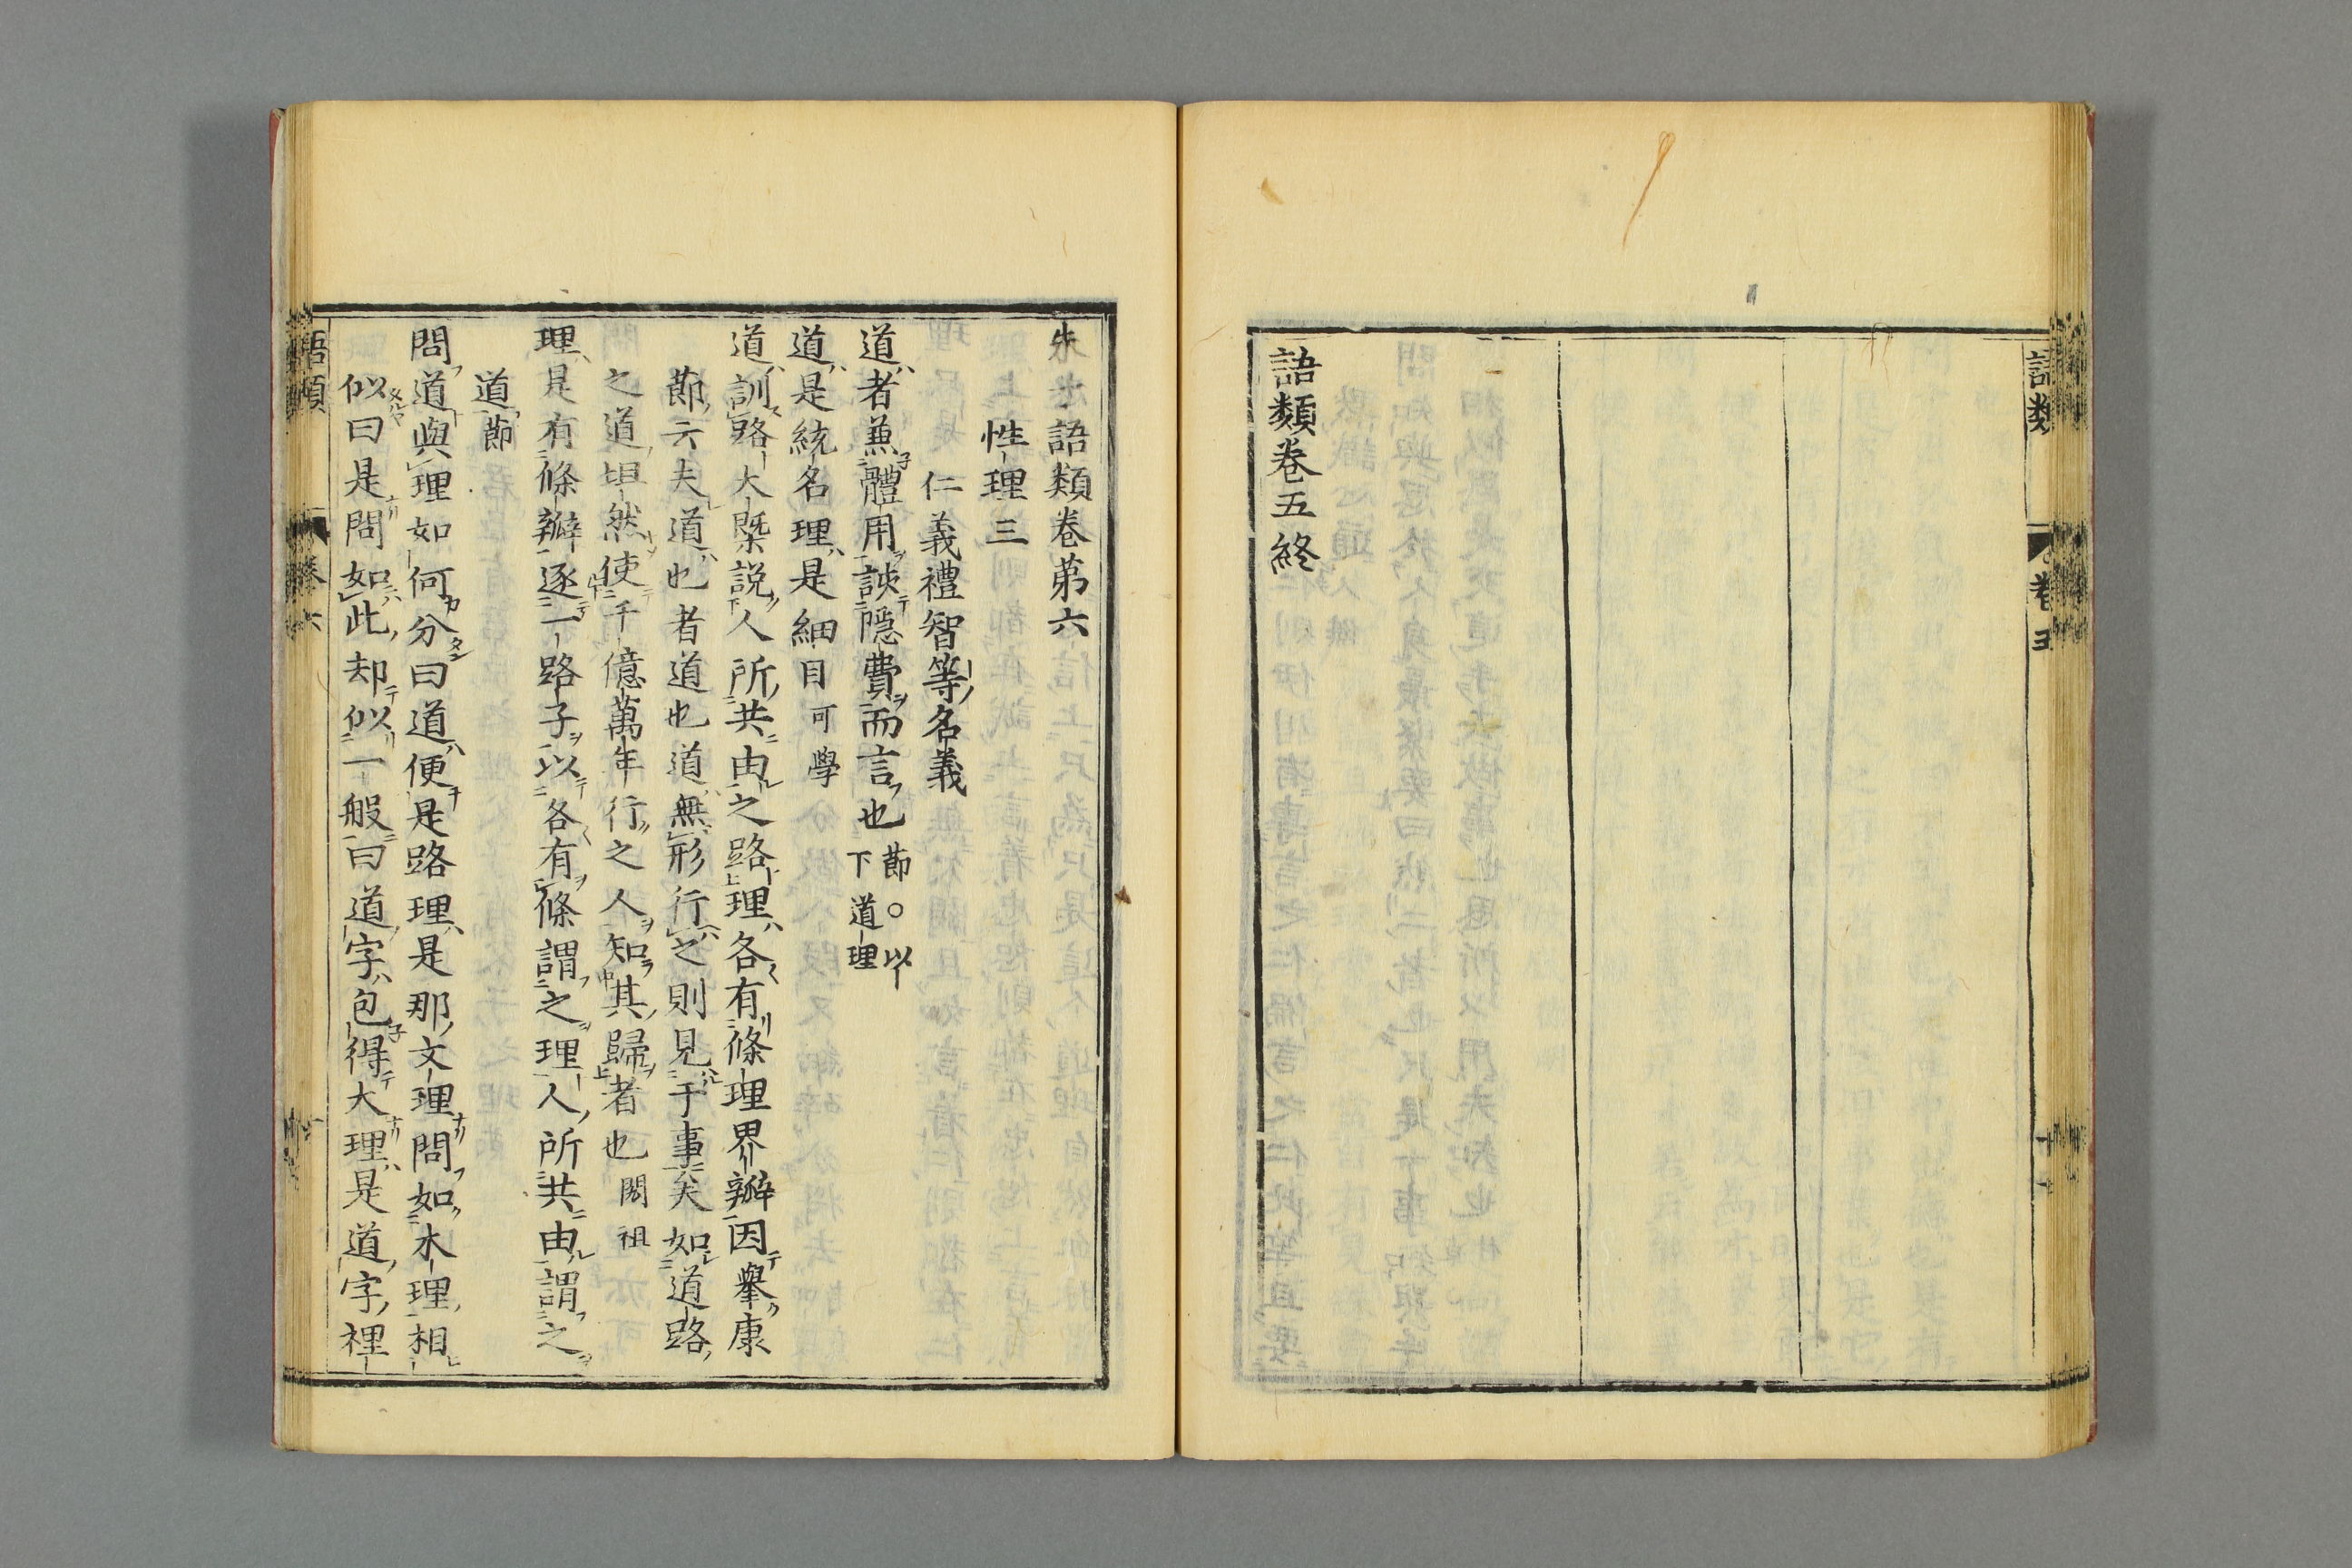 語類
卷五
十一
語類卷五終
朱子語類卷第六
性理三
仁義禮智等名義
道者兼體用該隱費而言也節○以下道理
道是統名理是細目可學
道訓路大槩説人所共由之路理各有條理界瓣因舉康
節云夫道也者道也道無形行之則見于事矣如道路
之道坦然使千億萬年行之人知其歸者也閎祖
理是有條瓣逐一路子以各有條謂之理人所共由謂之
道節
問道與理如何分曰道便是路理是那文理問如木理相
似曰是問如此却似一般曰道字包得大理是道字裡
語類
卷六